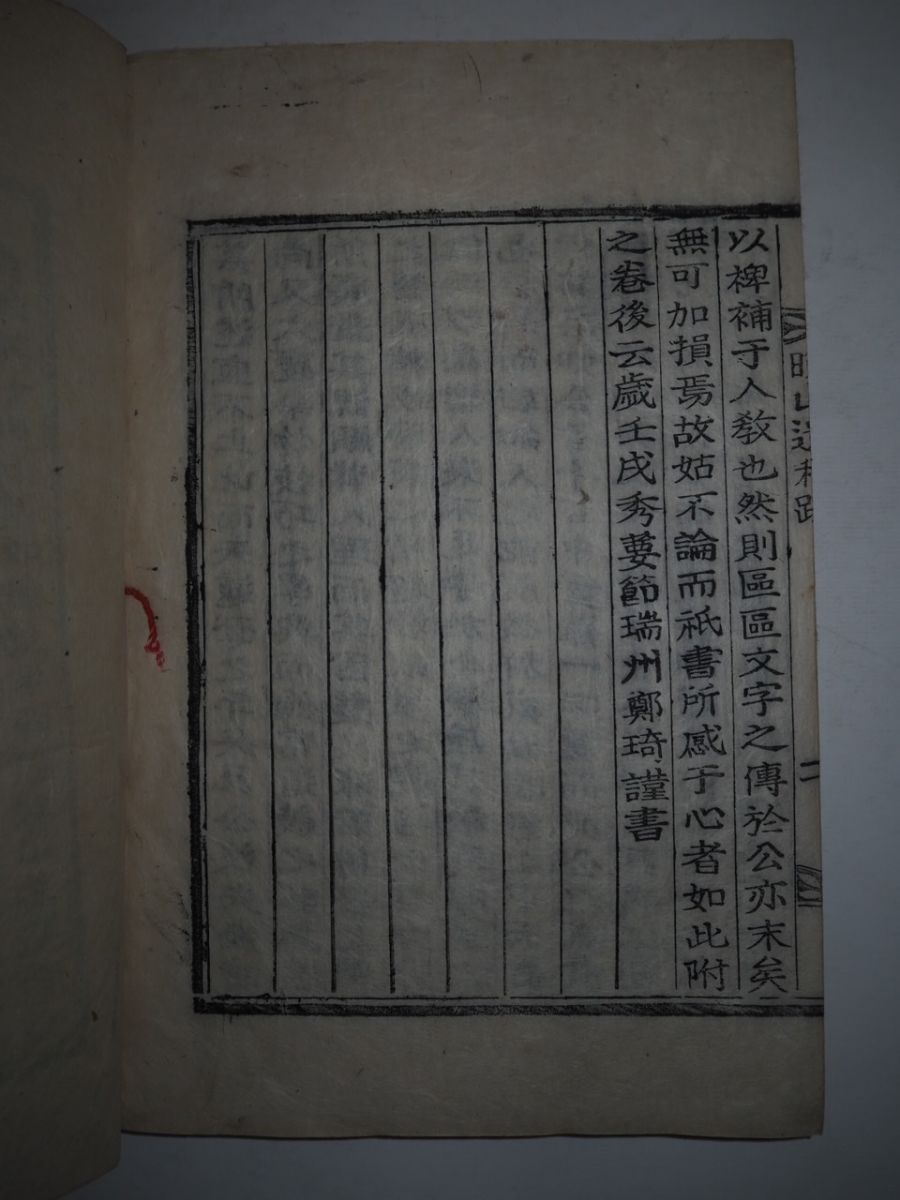 以裨補于人敎也然則區區文字之傳於公亦末矣
無可加損焉故姑不論而祇書所感于心者如此附
之卷後云歲壬戌秀葽節瑞州鄭琦謹書
山遺稿跋
二